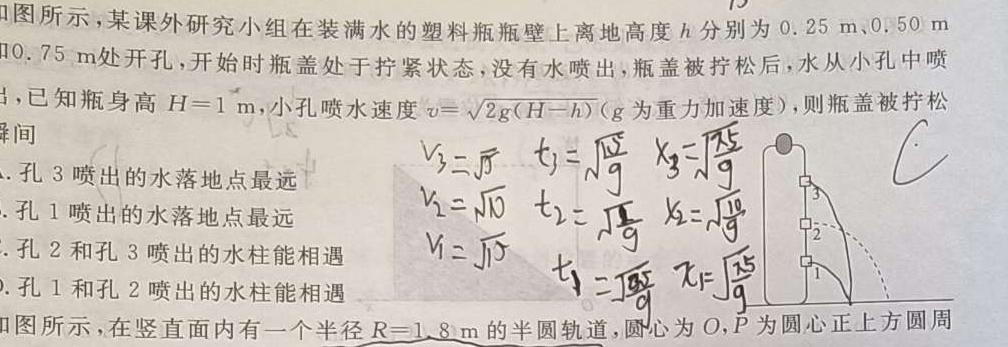 图所示,某课外研究小组在装满水的塑料瓶瓶壁上离地高度 h 分别为 0.25 m、0.50 m
0.75 m处开孔,开始时瓶盖处于拧紧状态,没有水喷出,瓶盖被拧松后,水从小孔中喷
,已知瓶身高 H=1 m,小孔喷水速度 v=√2g(H-h)(g 为重力加速度),则瓶盖被拧松
瞬间
. 孔 3 喷出的水落地点最远
. 孔 1 喷出的水落地点最远
. 孔 2 和孔 3 喷出的水柱能相遇
. 孔 1 和孔 2 喷出的水柱能相遇
V₃=√5 t₃=√15/g x₃=√75/g
V₂=√10 t₂= x₂=√10/g
V₁=√15 t₁= x₁=√75/g
C
3
2
1
图所示,在竖直面内有一个半径 R=1.8 m 的半圆轨道,圆心为 O,P 为圆心正上方圆周